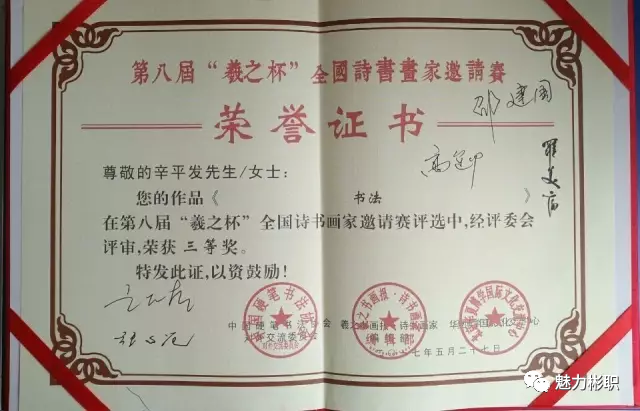 第八届“羲之杯”全國詩書畫家邀請賽
荣誉证书
邵建国
尊敬的辛平发先生/女士:
您的作品《 书法 》
在第八届“羲之杯”全国诗书画家邀请赛评选中,经评委会
评审,荣获三等奖。
特发此证,以资鼓励!
中国硬笔书法协会 羲之书画报·诗书画家
对外交流委员会 编辑部
七年五月二十七日
魅力彬职